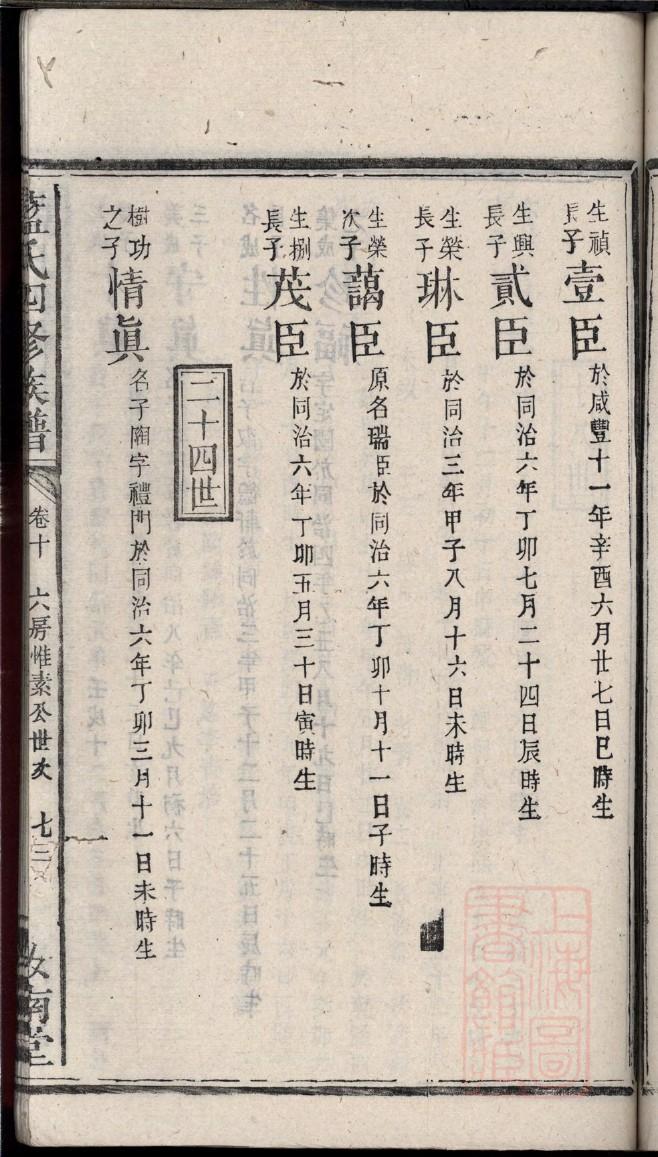 生禎長子壹臣於咸豐十一年辛酉六月廿七日巳時生
生興長子貳臣於同治六年丁卯七月二十四日辰時生
生榮長子琳臣於同治三年甲子八月十六日未時生
生榮次子藹臣原名瑞臣於同治六年丁卯十月十一日子時生
生捌長子茂臣於同治六年丁卯五月三十日寅時生
二十四世
樹功之子情眞名子廟字禮門於同治六年丁卯三月十一日未時生
藍氏四修族譜
卷十 六房惟素公世次 七三
汝南堂
上海圖書館藏